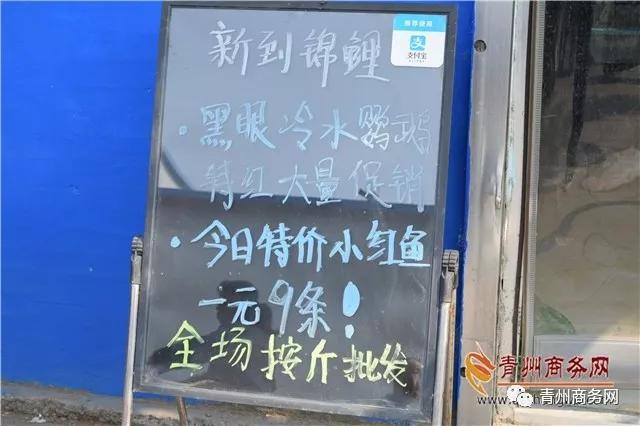 推荐使用
支付宝
新到锦鲤
·黑眼冷水鹦鹉
特红大量促销
·今日特价小红鱼
一元9条!
全场按斤批发
青州商务网
青州商务网